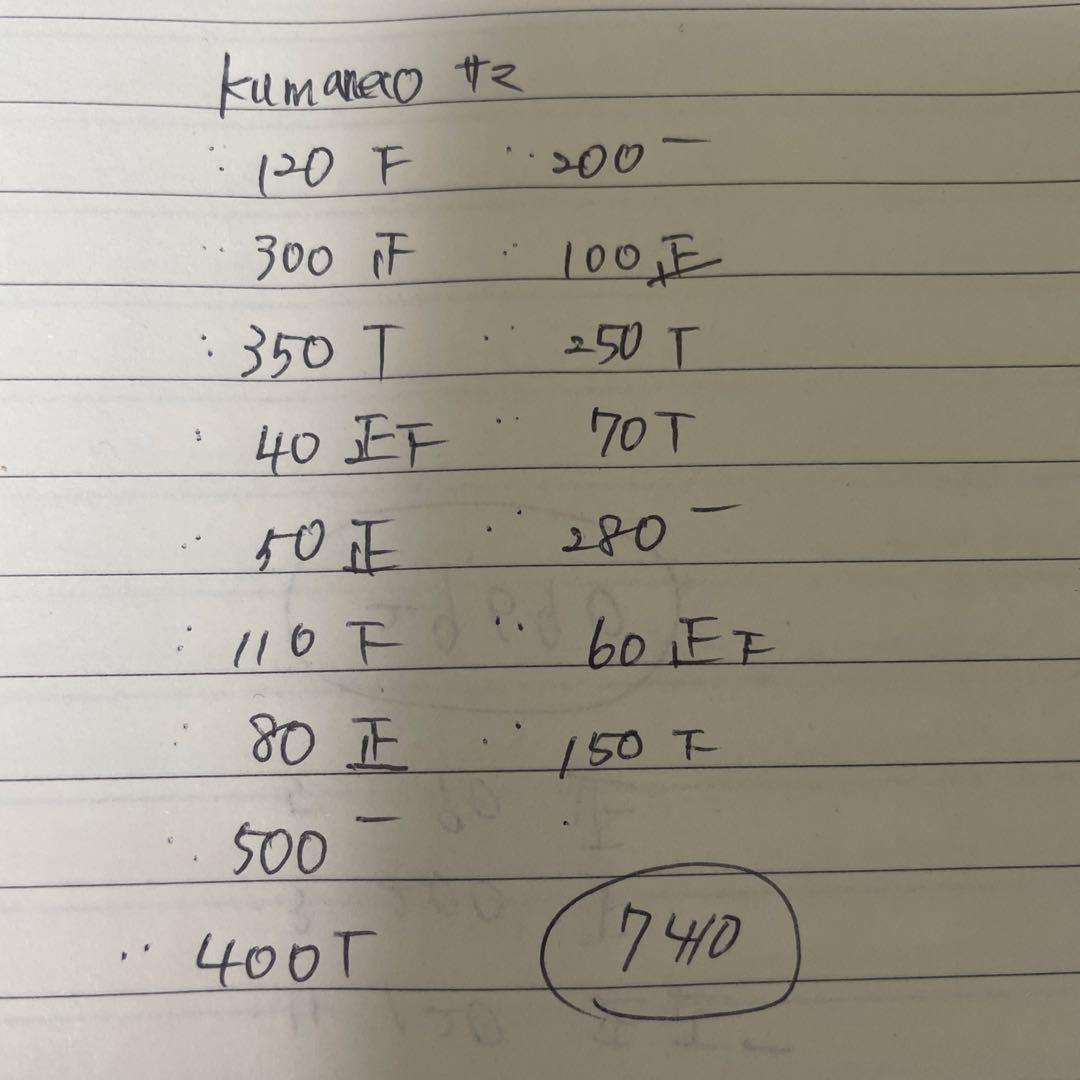 kumanao サマ
120 下 200 一
300 正 100 正
350 T 250 T
40 正下 70 T
50 正 280 一
110 下 60 正下
80 正 150 下
500 一
400 T 7410